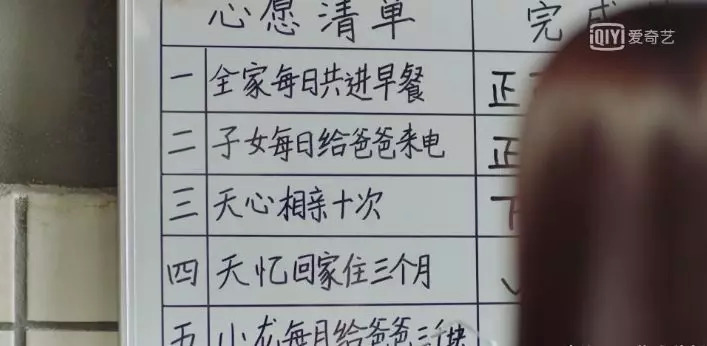 心愿清单 完成
iQIYI 爱奇艺
一 全家每日共进早餐 正
二 子女每日给爸爸来电 正
三 天心相亲十次
四 天忆回家住三个月
五 小龙每月给爸爸三千块